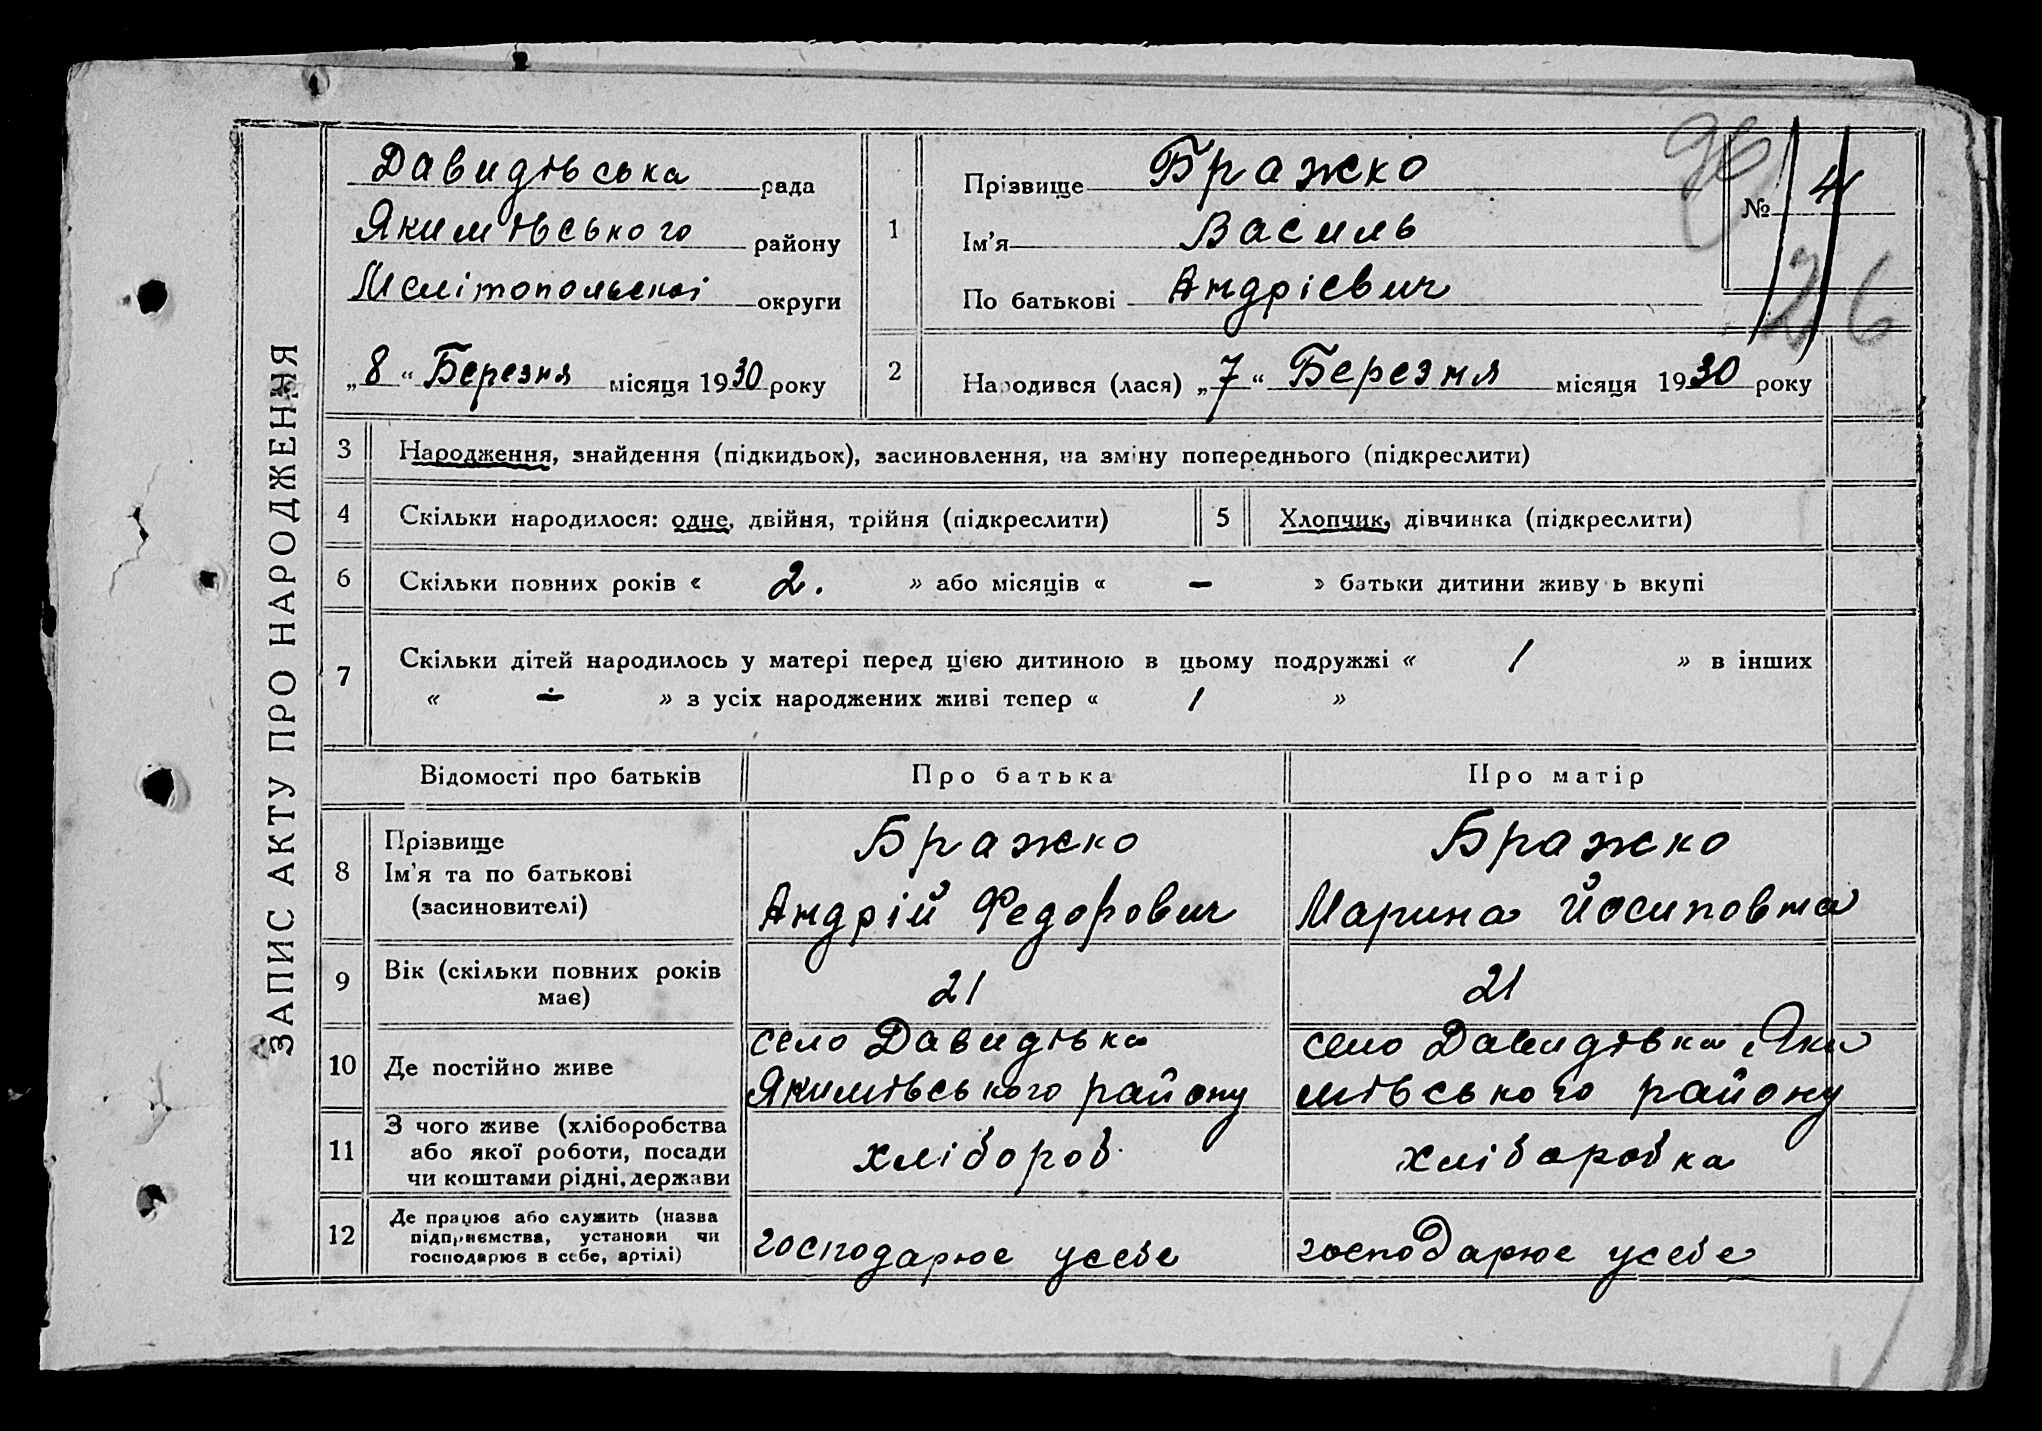 ЗАПИС АКТУ ПРО НАРОДЖЕННЯ
Давидівська рада
Якимівського району
Мелітопольської округи
„8“ Березня місяця 1930 року
1
Прізвище Бражко
Ім'я Василь
По батькові Андрієвич
№ 4
26
2
Народився (лася) „7“ Березня місяця 1930 року
3 Народження, знайдення (підкидьок), засиновлення, на зміну попереднього (підкреслити)
4 Скільки народилося: одне, двійня, трійня (підкреслити)
5 Хлопчик, дівчинка (підкреслити)
6 Скільки повних років « 2. » або місяців « – » батьки дитини живуть вкупі
7 Скільки дітей народилось у матері перед цією дитиною в цьому подружжі « 1 » в інших
« – » з усіх народжених живі тепер « 1 »
Відомості про батьків Про батька Про матір
8 Прізвище
Ім'я та по батькові
(засиновителі)
Бражко
Андрій Федорович
Бражко
Марина Йосиповна
9 Вік (скільки повних років
має)
21
21
10 Де постійно живе
село Давидівка
Якимівського району
село Давидівка Яки
мівського району
11 З чого живе (хліборобства
або якої роботи, посади
чи коштами рідні, держави
хлібороб
хліборобка
12 Де працює або служить (назва
підприємства, установи чи
господарює в себе, артілі)
господарює усебе
господарює усебе